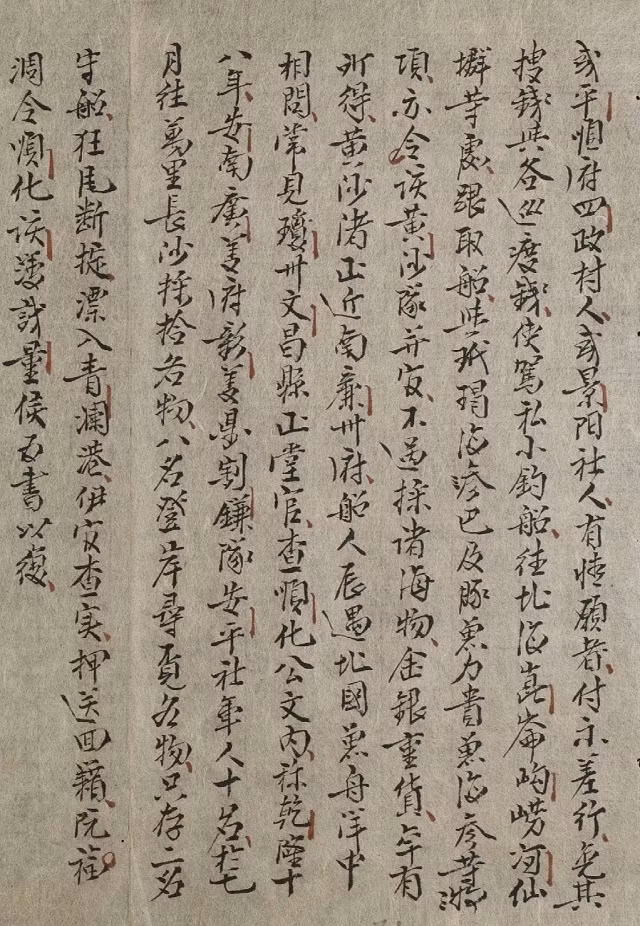 或平順府四政村人或景陽社人有情願者付示差行免其
搜錢與各巡渡錢使駕私小釣船往北海崑崙岣嶗河仙
等處跟取船與玳瑁海巴及豚魚力貴魚海參等
項亦令該黃沙隊并官不過採諸海物金銀重貨罕有
所得黃沙渚正近南廉州府船人辰遇北國魚舟洋中
相問常見瓊州文昌縣正堂官查順化公文內称乾隆十
八年安南廣義府彰義县割鎌隊安平社軍人十名於七
月往萬里長沙採拾各物八名登岸尋覓各物只存二名
守船狂風斷捉漂入青瀾港伊官查实押送回籍阮福
淍令順化該簿識量侯為書以復